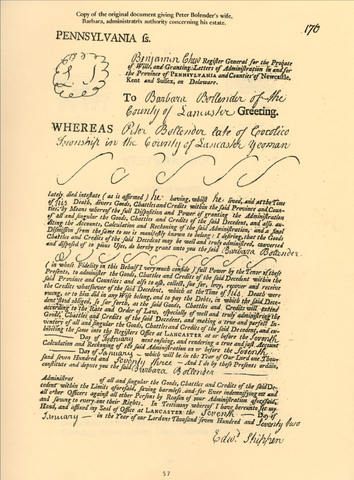 Copy of the original document giving Peter Bolender's wife,
Barbara, administratrix authority concerning his estate.
176
PENNSYLVANIA ſs.
Benjamin Chew Register General for the Probate
of Wills, and Granting Letters of Administration in and for
the Province of PENNSYLVANIA and Counties of Newcastle,
Kent and Sussex, on Delaware.
L S
To Barbara Bollender of the
County of Lancaster Greeting.
WHEREAS Peter Bollender late of Cocolico
Township in the County of Lancaster Yeoman
lately died intestate (as is affirmed) he having, whilst he lived, and at the Time
of his Death, divers Goods, Chattles and Credits within the said Province and Coun-
ties, by Means whereof the full Disposition and Power of granting the Administration
of all and singular the Goods, Chattles and Credits of the said Decedent, and also au-
diting the Accounts, Calculation and Reckoning of the said Administration, and a final
Dismission from the same to us is manifestly known to belong: I desiring, that the Goods,
Chattles and Credits of the said Decedent may be well and truly administred, converted
and disposed of to pious Uses, do hereby grant unto the said Barbara Bollender
(in whose Fidelity in this Behalf very much confide) full Power by the Tenor of these
Presents, to administer the Goods, Chattles and Credits of the said Decedent within the
said Province and Counties; and also to ask, collect, sue for, levy, recover and receive
the Credits whatsoever of the said Decedent, which at the Time of his Death were
owing, or to him did in any wise belong, and to pay the Debts, in which the said Dece-
dent stood obliged, so far forth, as the said Goods, Chattles and Credits will extend
according to the Rate and Order of Law, especially of well and truly administring the
Goods, Chattles and Credits of the said Decedent, and making a true and perfect In-
ventory of all and singular the Goods, Chattles and Credits of the said Decedent, and ex-
hibiting the same into the Registers Office at LANCASTER at or before the Seventh
Day of February next ensuing, and rendring a true and just Account
Calculation and Reckoning of the said Administration at or before the Seventh
Day of January which will be in the Year of Our Lord One Thou-
sand Seven Hundred and Seventy three And I do by these Presents ordain,
constitute and depute you the said Barbara Bollender
Administrat of all and singular the Goods, Chattles and Credits of the said De-
cedent within the Limits aforesaid, saving harmless and for Ever indemnifying me and
all other Officers against all other Persons by Reason of your Administration aforesaid,
and saving to every one their Rights. In Testimony whereof I have hereunto set my
Hand, and affixed my Seal of Office at LANCASTER the Seventh Day of
January in the Year of our Lord one Thousand Seven Hundred and Seventy two
Edwd. Shippen
57